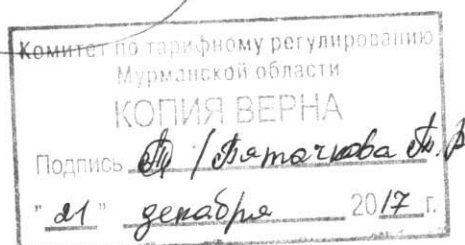 Комитет по тарифному регулированию
Мурманской области
КОПИЯ ВЕРНА
Подпись / Пятачкова
"21" декабря 2017 г.